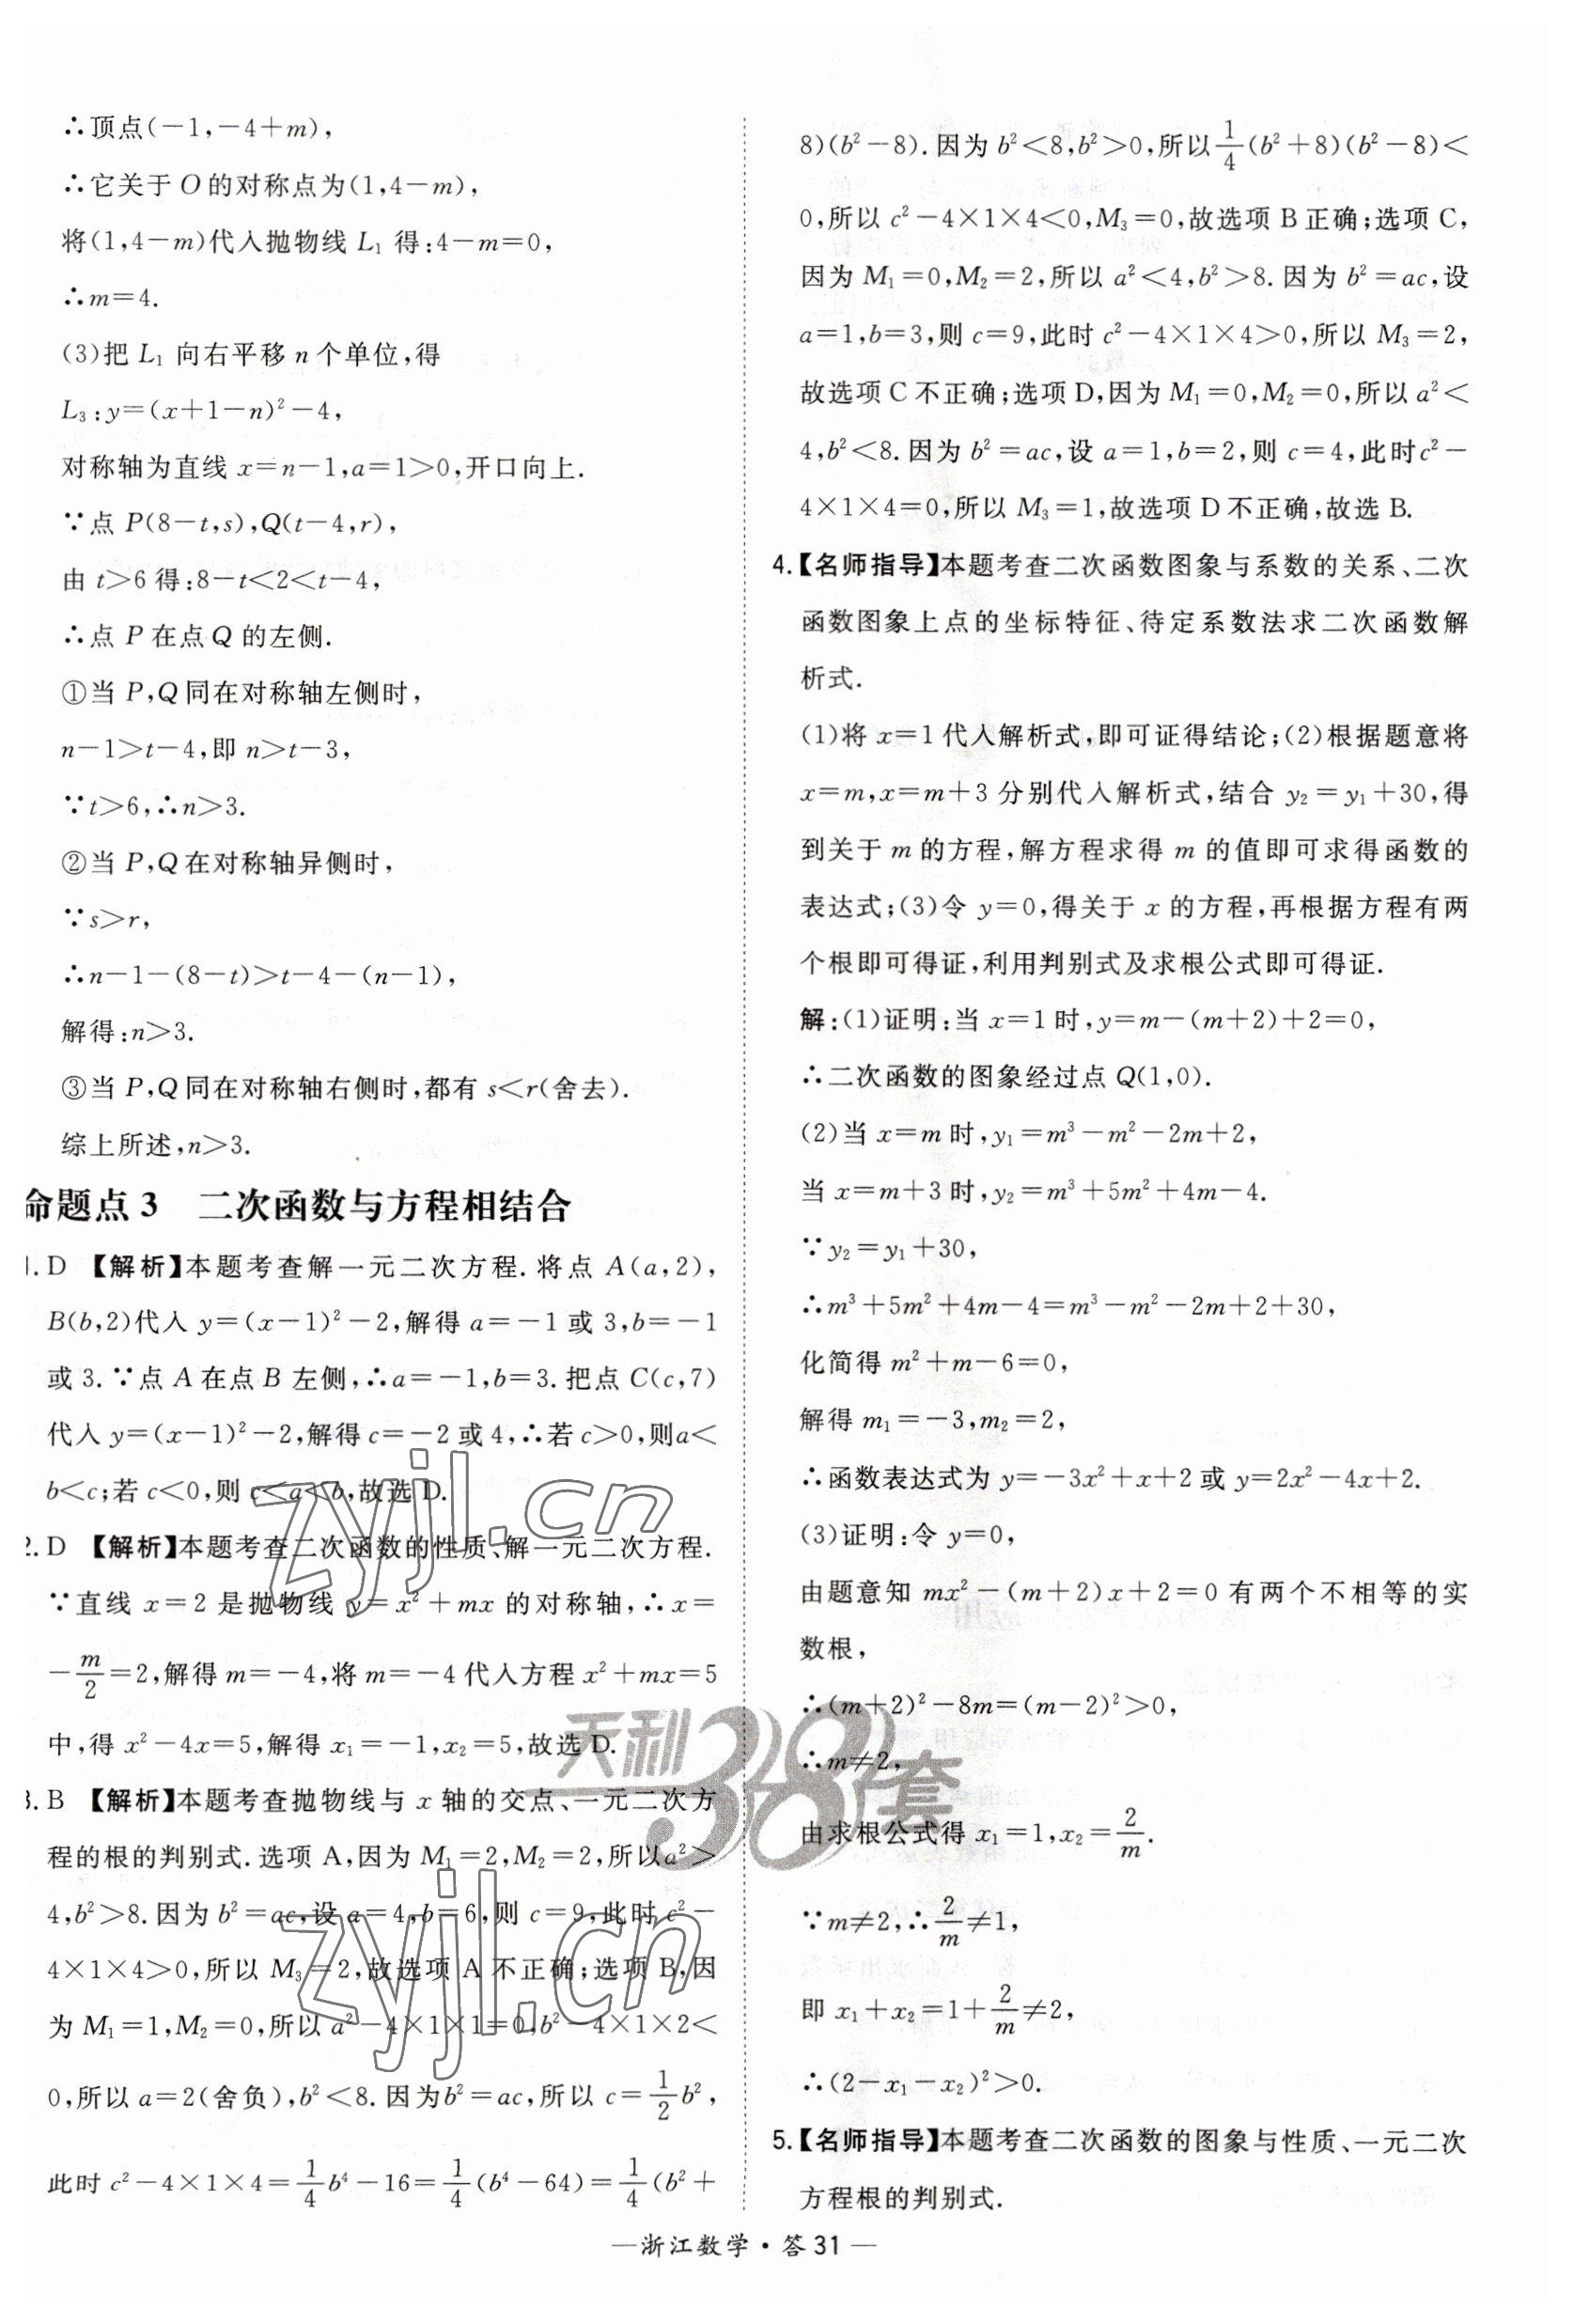 ∴顶点(－1,－4＋m),
∴它关于 O 的对称点为(1,4－m),
将(1,4－m)代入抛物线 L₁ 得:4－m＝0,
∴m＝4.
(3)把 L₁ 向右平移 n 个单位,得
L₃:y＝(x＋1－n)²－4,
对称轴为直线 x＝n－1,a＝1＞0,开口向上.
∵点 P(8－t,s),Q(t－4,r),
由 t＞6 得:8－t＜2＜t－4,
∴点 P 在点 Q 的左侧.
①当 P,Q同在对称轴左侧时,
n－1＞t－4,即 n＞t－3,
∵t＞6,∴n＞3.
②当 P,Q在对称轴异侧时,
∵s＞r,
∴n－1－(8－t)＞t－4－(n－1),
解得:n＞3.
③当 P,Q同在对称轴右侧时,都有 s＜r(舍去).
综上所述,n＞3.
命题点 3 二次函数与方程相结合
1. D 【解析】本题考查解一元二次方程. 将点 A(a,2),
B(b,2)代入 y＝(x－1)²－2,解得 a＝－1 或 3,b＝－1
或 3. ∵点 A 在点 B 左侧,∴a＝－1,b＝3. 把点 C(c,7)
代入 y＝(x－1)²－2,解得 c＝－2 或 4,∴若 c＞0,则a＜
b＜c;若 c＜0,则 c＜a＜b,故选 D.
2. D 【解析】本题考查二次函数的性质、解一元二次方程.
∵直线 x＝2 是抛物线 y＝x²＋mx 的对称轴,∴x＝
－m/2＝2,解得 m＝－4,将 m＝－4 代入方程 x²＋mx＝5
中,得 x²－4x＝5,解得 x₁＝－1,x₂＝5,故选 D.
3. B 【解析】本题考查抛物线与 x 轴的交点、一元二次方
程的根的判别式. 选项 A,因为 M₁＝2,M₂＝2,所以a²＞
4,b²＞8. 因为 b²＝ac,设 a＝4,b＝6,则 c＝9,此时 c²－
4×1×4＞0,所以 M₃＝2,故选项 A 不正确;选项 B,因
为 M₁＝1,M₂＝0,所以 a²－4×1×1＝0,b²－4×1×2＜
0,所以 a＝2(舍负),b²＜8. 因为b²＝ac,所以 c＝1/2b²,
此时 c²－4×1×4＝1/4b⁴－16＝1/4(b⁴－64)＝1/4(b²＋
8)(b²－8). 因为 b²＜8,b²＞0,所以1/4(b²＋8)(b²－8)＜
0,所以 c²－4×1×4＜0,M₃＝0,故选项 B 正确;选项 C,
因为 M₁＝0,M₂＝2,所以 a²＜4,b²＞8. 因为 b²＝ac,设
a＝1,b＝3,则 c＝9,此时 c²－4×1×4＞0,所以 M₃＝2,
故选项 C 不正确;选项 D,因为 M₁＝0,M₂＝0,所以 a²＜
4,b²＜8. 因为 b²＝ac,设 a＝1,b＝2,则 c＝4,此时c²－
4×1×4＝0,所以 M₃＝1,故选项 D 不正确,故选 B.
4.【名师指导】本题考查二次函数图象与系数的关系、二次
函数图象上点的坐标特征、待定系数法求二次函数解
析式.
(1)将 x＝1 代入解析式,即可证得结论;(2)根据题意将
x＝m,x＝m＋3 分别代入解析式,结合 y₂＝y₁＋30,得
到关于 m 的方程,解方程求得 m 的值即可求得函数的
表达式;(3)令 y＝0,得关于 x 的方程,再根据方程有两
个根即可得证,利用判别式及求根公式即可得证.
解:(1)证明:当 x＝1 时,y＝m－(m＋2)＋2＝0,
∴二次函数的图象经过点 Q(1,0).
(2)当 x＝m 时,y₁＝m³－m²－2m＋2,
当 x＝m＋3 时,y₂＝m³＋5m²＋4m－4.
∵y₂＝y₁＋30,
∴m³＋5m²＋4m－4＝m³－m²－2m＋2＋30,
化简得 m²＋m－6＝0,
解得 m₁＝－3,m₂＝2,
∴函数表达式为 y＝－3x²＋x＋2 或 y＝2x²－4x＋2.
(3)证明:令 y＝0,
由题意知 mx²－(m＋2)x＋2＝0 有两个不相等的实
数根,
∴(m＋2)²－8m＝(m－2)²＞0,
∴m≠2,
由求根公式得 x₁＝1,x₂＝2/m.
∵m≠2,∴2/m≠1,
即 x₁＋x₂＝1＋2/m≠2,
∴(2－x₁－x₂)²＞0.
5.【名师指导】本题考查二次函数的图象与性质、一元二次
方程根的判别式.
—浙江数学·答 31—
zyjl.cn
天利38套
zyjl.cn